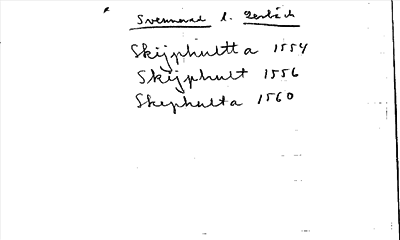 Svenneval l. Lerbäck
Skijphultta 1554
Skijphult 1556
Skephulta 1560